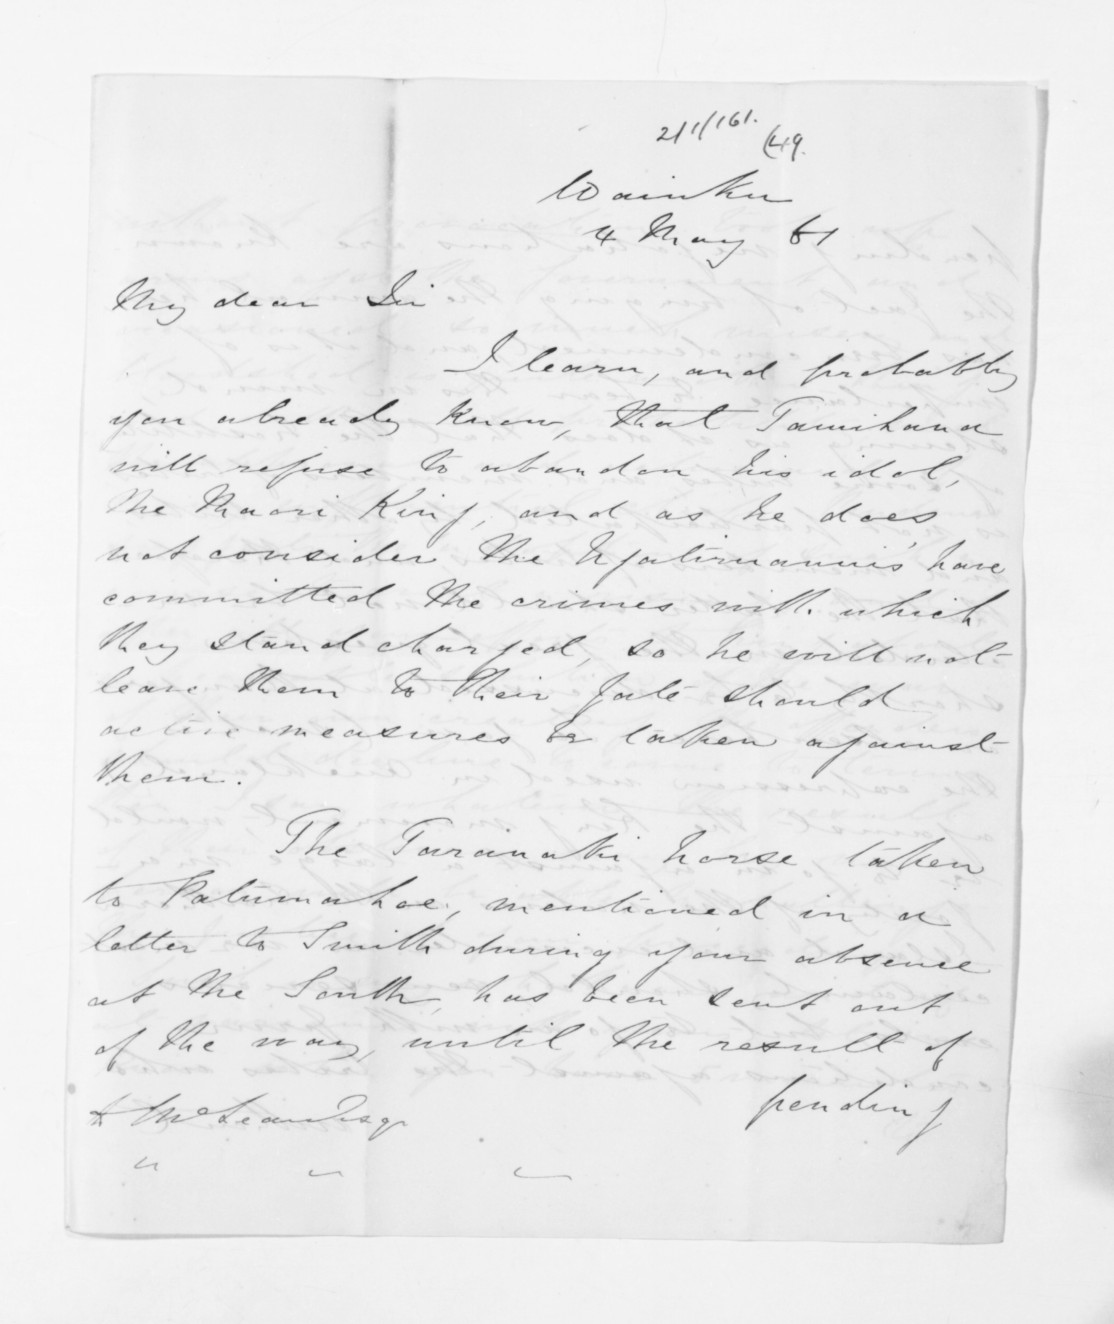 2/1/161.
(49.
Waiuku
4 May 61
My dear Sir
I learn, and probably
you already know, that Tamihana
will refuse to abandon his idol,
the Maori King, and as he does
not consider the Ngatiruanui's have
committed the crimes with which
they stand charged, so he will not
leave them to their fate should
active measures be taken against
them.
The Taranaki horse taken
to Patumahoe, mentioned in a
letter to Smith during your absence
at the South, has been sent out
of the way, until the result of
pending
D McLean Esqr